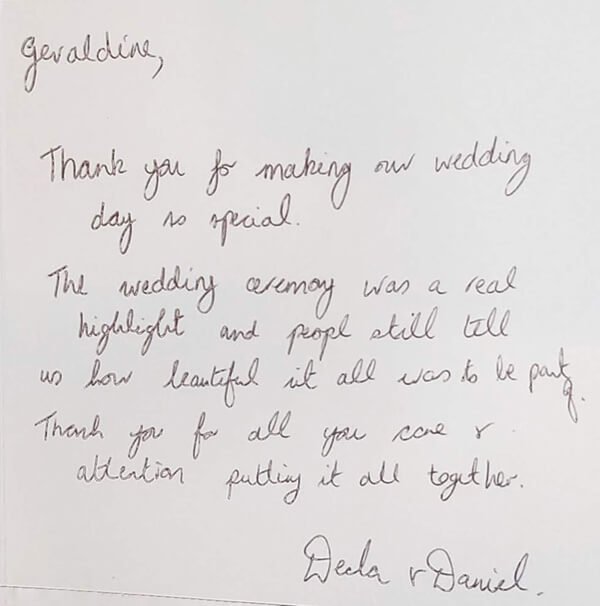 Geraldine,
Thank you for making our wedding
day so special.
The wedding ceremony was a real
highlight and people still tell
us how beautiful it all was to be part
of.
Thank you for all you care &
attention putting it all together.
Decla & Daniel.